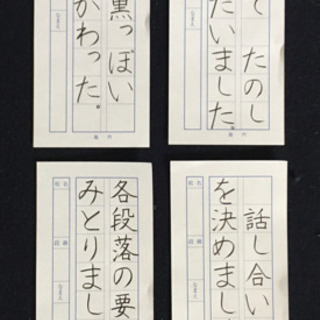 黒っぽい
かわった。
て たのし
たいました。
各段落の要
みとりまし
話し合い
を決めまし
なまえ
なまえ
なまえ
なまえ